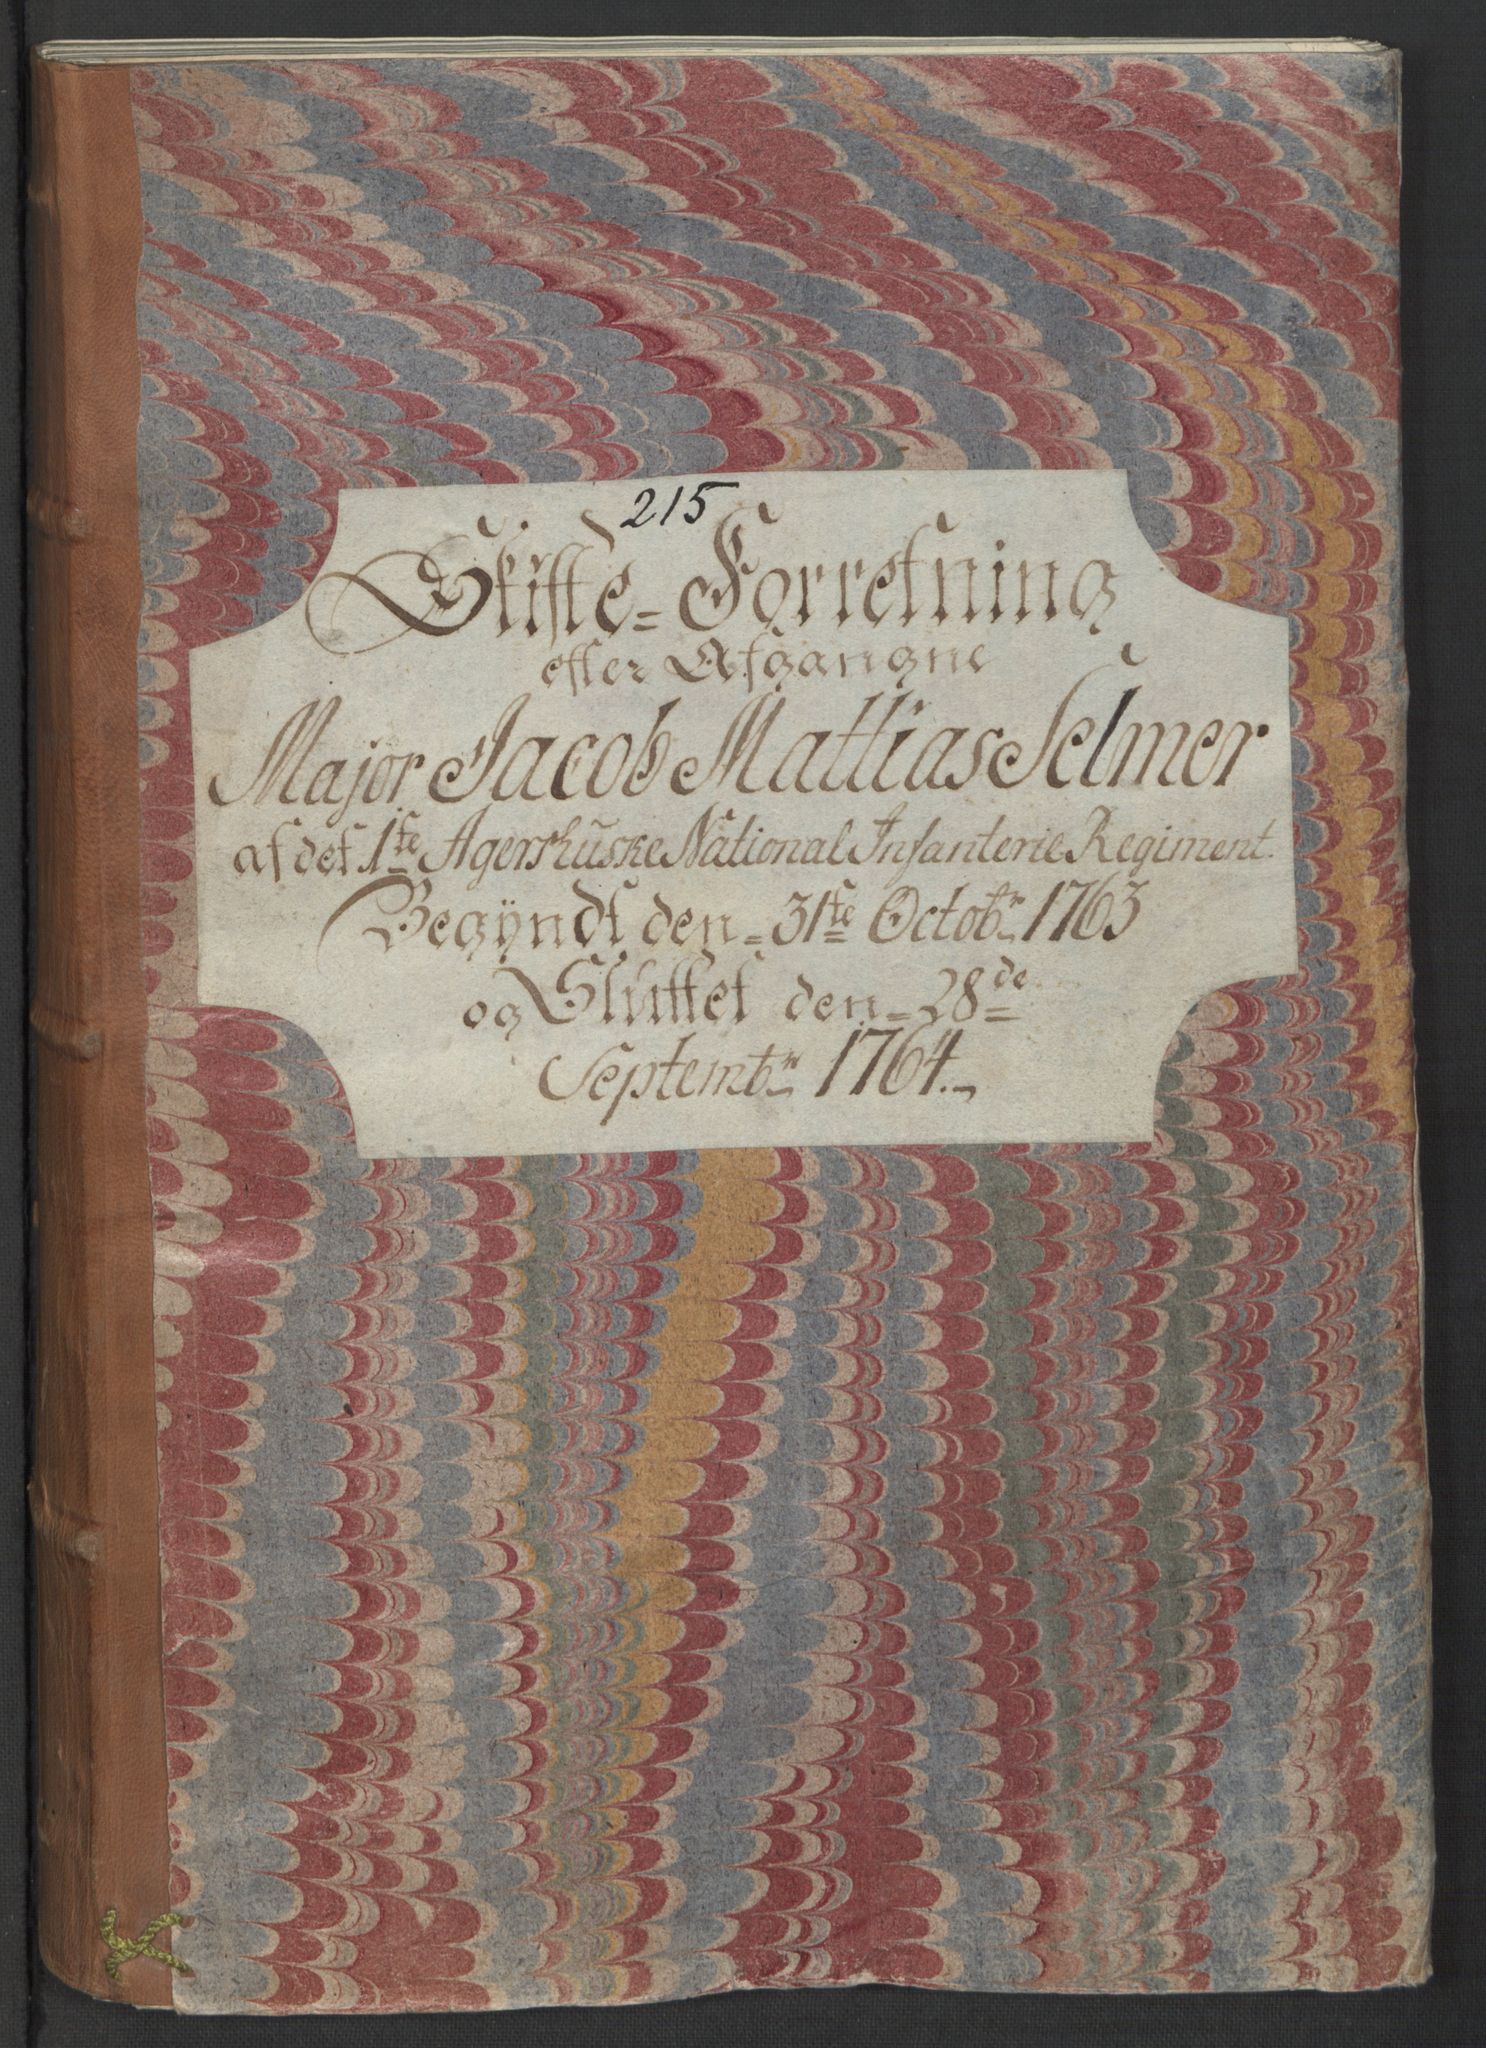 215
Skifte=Forretning
efter Afgangne
Major Jacob Mattias Selmer
af det 1te Agershuuske National Infanterie Regiment.
Begyndt den 31te Octobr 1763
og Sluttet den 28de
Septembr 1764.